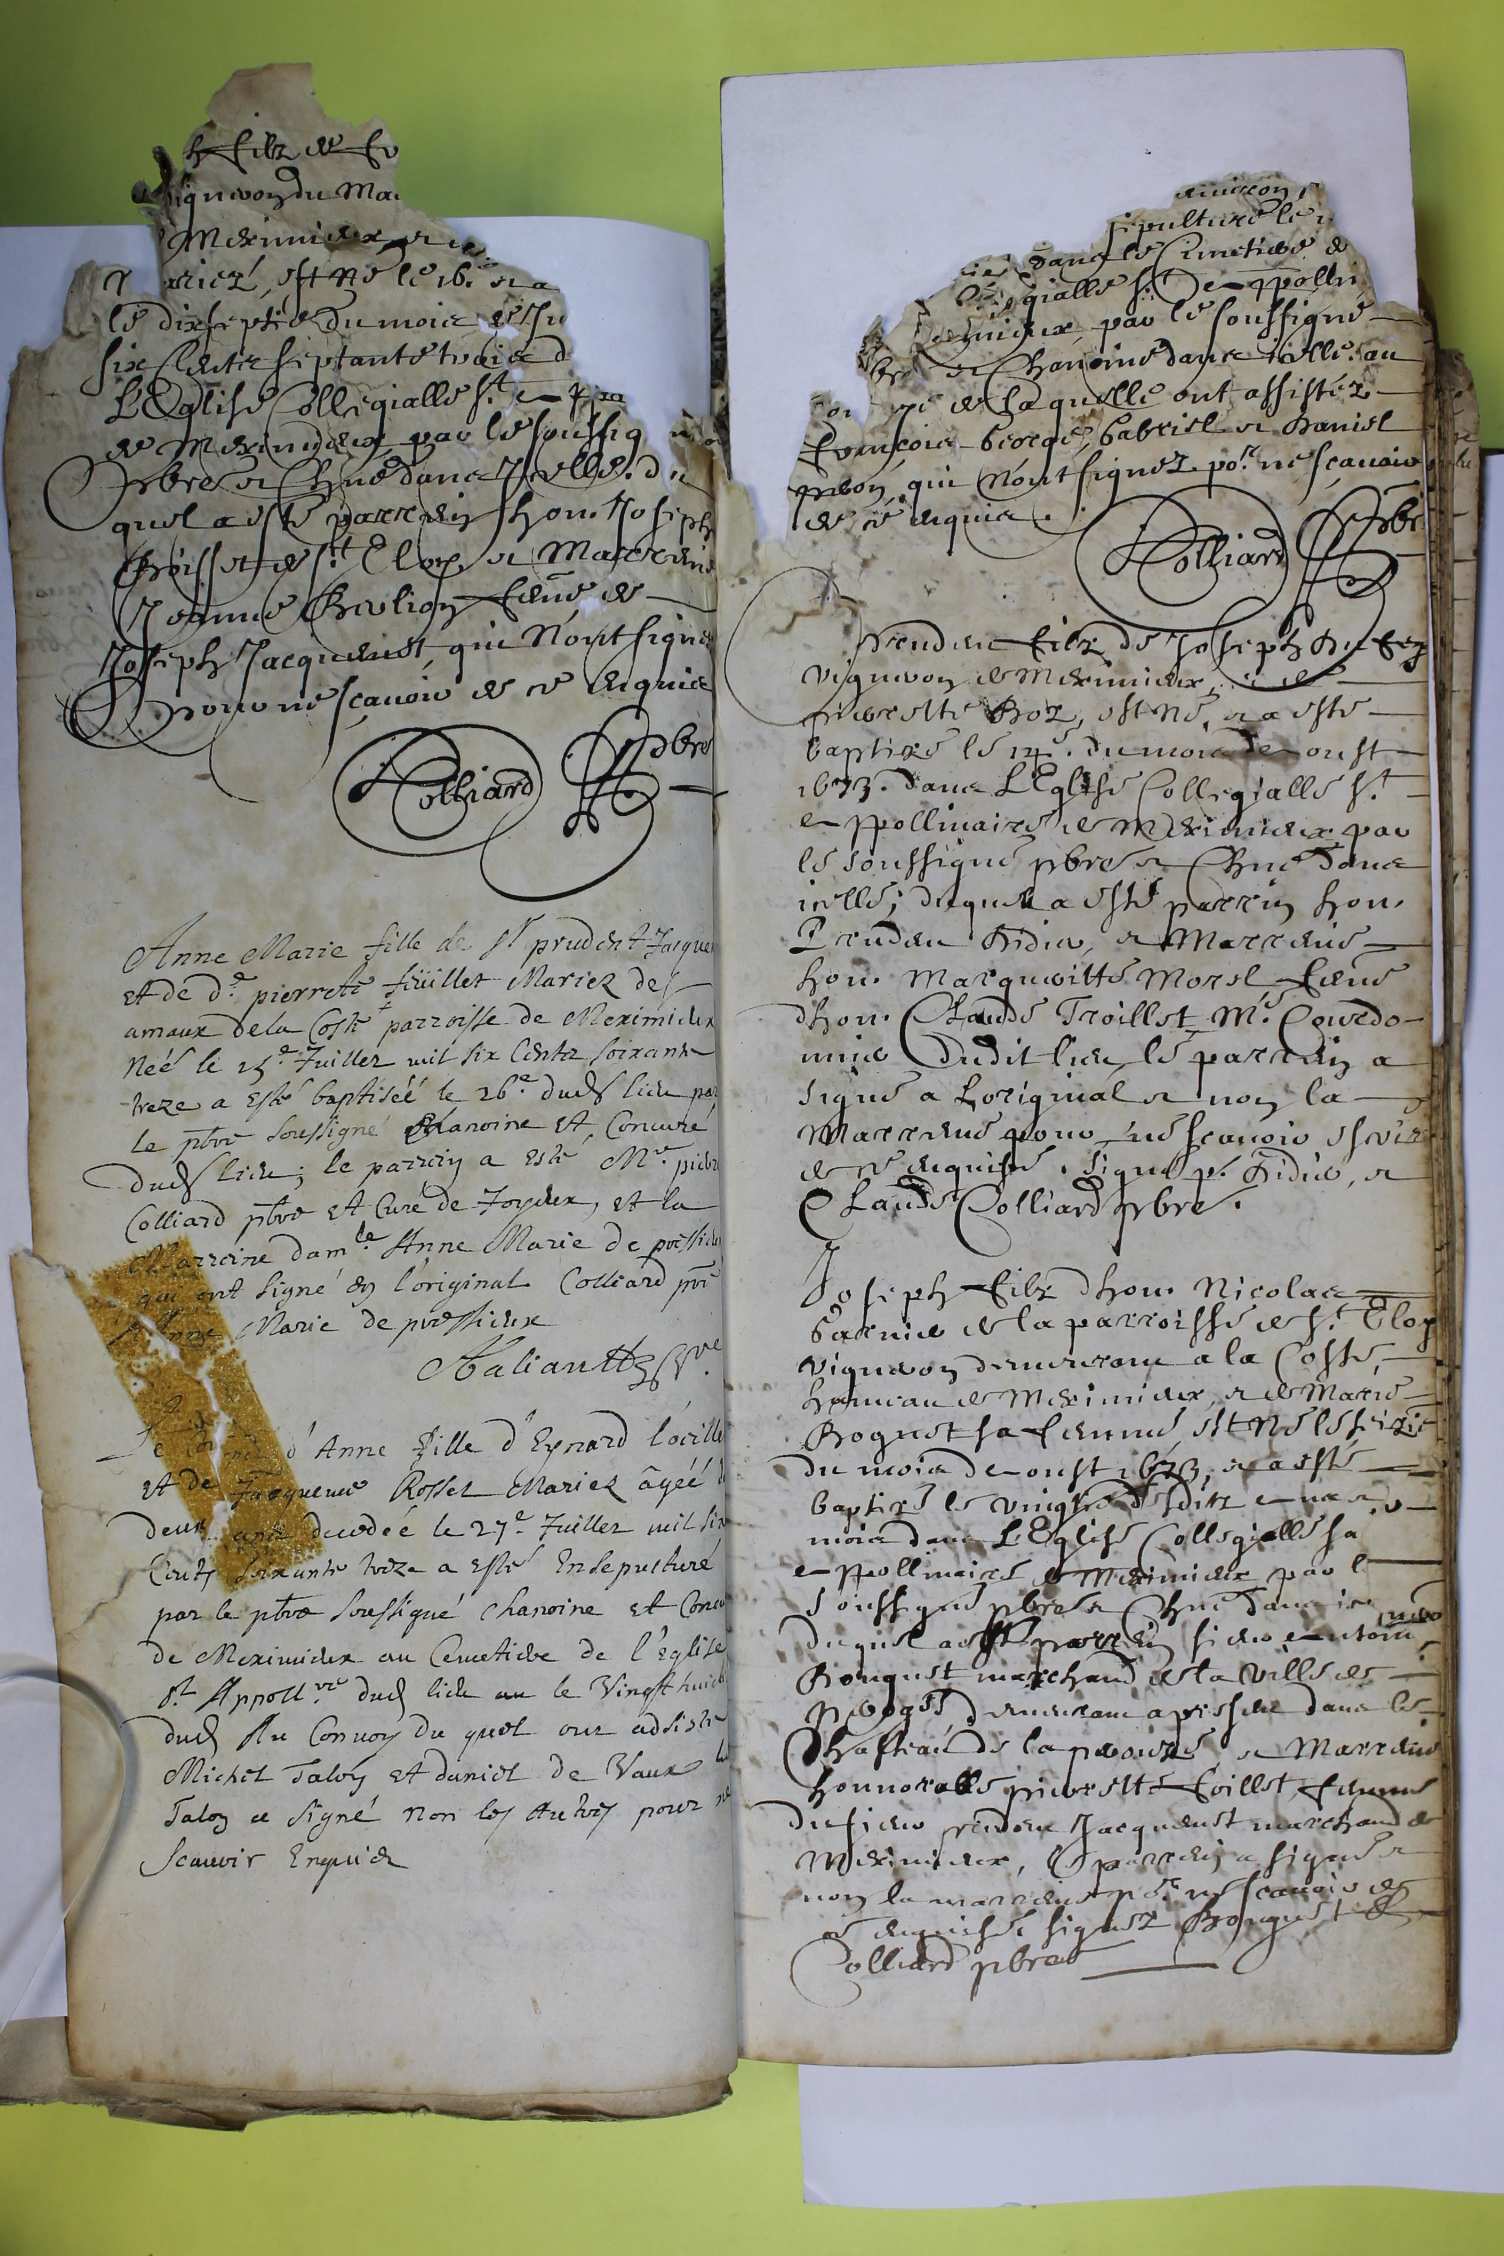 h filz de fr
vigneron du Ma
Meximieux et
riez, est né le 16. et a
le dixseptie du mois de Ju
six Cents septante trois d
L'Eglise Collegialle St.
de Meximieux par le soussig
pbre et Chne dans Icelle. du
quel a esté parrein hon. Joseph
de St Eloy et Marreine
Jeanne feme de
Joseph Jacquemet qui n'ont signé
pour ne scavoir de ce enquis
Colliard pbre
Anne Marie fille de Sr prudent Jacque
et de de pierrete füillet Mariez de
amaux dela Coste parroisse de Meximieux
Neé le 25e Juillet mil six Cents soixante
treze a esté baptiséé le 26e dud lieu par
le pbre soussigné Chanoine et Concuré
dud lieu; le parrein a esté Mre. pierre
Colliard pbre et Curé de Joyeux, et la
Marreine damle Anne Marie de poessieu
qui ont signé en l'original Colliard pbr
Anne Marie de poessieux
d'Anne fille d'Eynard loeille
et de Jacqueme Rosset Mariez âgéé d
deux ans decedéé le 27e. Juillet mil six
Cents soixante treze a esté Ensepulturé
par le pbre soussigné chanoine et Concu
de Meximieux au Cemetiere de l'Eglise
St Appollre dud lieu au le Vingt huict
dud Au Convoy du quel ont adsisté
Michel Talon et daniel de Vaux le
Talon a signé non les Autres pour ne
Scavoir Enquis
sepulture le
dans le Cimetiere d
gialle St Appolli
Meximieux par le soussigné
bre et Chanoine dans icelle. au
de laquelle ont assistéz
François George, Gabriel et Daniel
qui n'ont signez por. ne scavoir
de ce enquis.
Colliard pbr
prenden filz de Joseph
vigneron de Meximieux, et de
pierrette Roz, est né, et a esté
baptizé le 14e. du mois de oust
1673. dans L'Eglise Collegialle St.
Appollinaire de Meximieux par
le soussigné pbre et Chne dans
icelle; duquel a esté parrein hon.
Prenden Didier, et Marreine
hon. Margueritte Morel feme
d'hon. Claude Troillet Me. Cordo-
nnier dudit lieu le parrein a
signé a L'original et non la
Marreine pour ne scavoir escrire
de ce enquise. signé p. Didier, et
Claude Colliard pbre.
Joseph filz d'hon. Nicolas
Garnier de la parroisse de St. Eloy
vigneron demeurant a la Coste,
hameau de Meximieux et de Marie
Boguet sa femme, est né le seizie
du mois de oust 1673, et a esté
baptizé le vingtie desditz an et
mois dans L'Eglise Collegialle sa
Appollinaire de Meximieux par l
soussigné pbre et Chne dans ice
duquel a esté parrein sieur Antoine
Bouguet marchand de la ville de
demeurant a present dans le
Chasteau de la et Marreine
honnorable pierrette foillet, femme
du sieur prenden Jacquemet marchand de
Meximieux, le parrein a signé et
non la marreine por. ne scavoir de
ce enquise signez Bouguet &
Colliard pbre